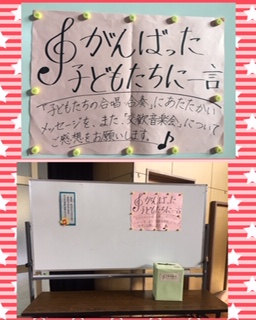 がんばった
子どもたちに一言
「子どもたちの合唱・合奏」にあたたかい
メッセージを、また、「交歓音楽会」について
ご感想をお願いします。
がんばった
子どもたちに一言